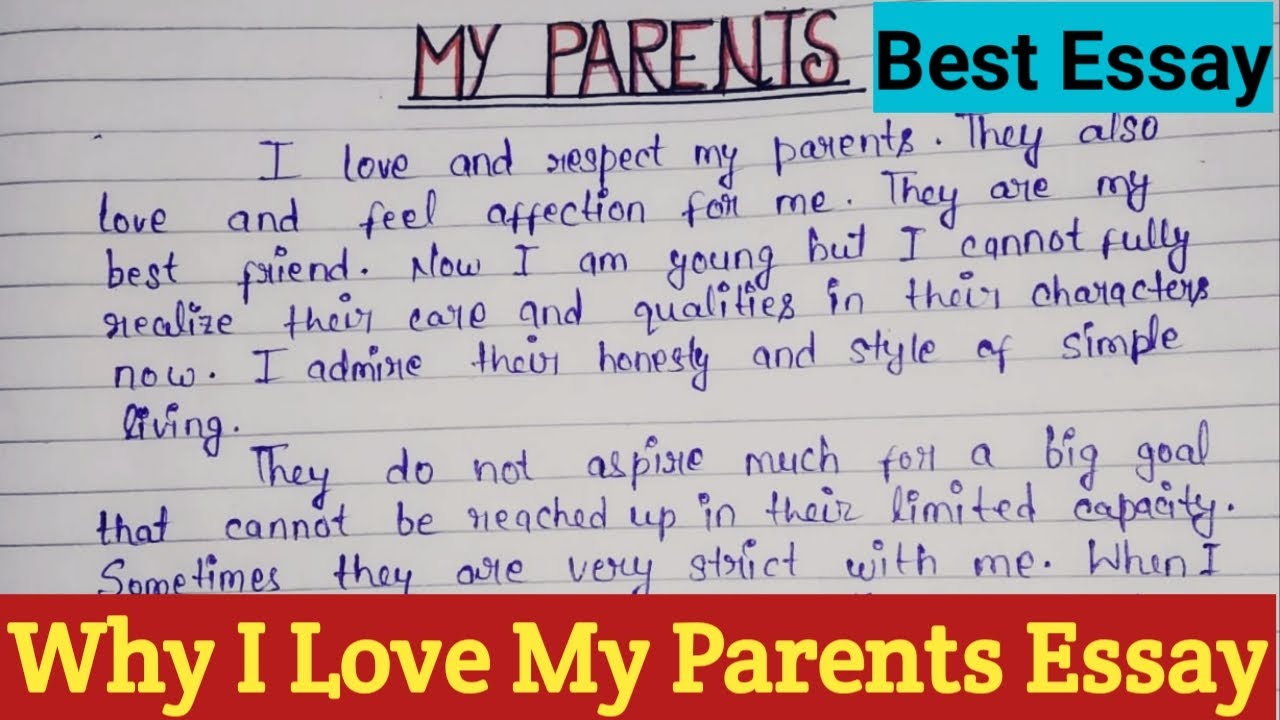 MY PARENTS
Best Essay
I love and respect my parents. They also
love and feel affection for me. They are my
best friend. Now I am young but I cannot fully
realize their care and qualities in their characters
now. I admire their honesty and style of simple
living.
They do not aspire much for a big goal
that cannot be reached up in their limited capacity.
Sometimes they are very strict with me. When I
Why I Love My Parents Essay